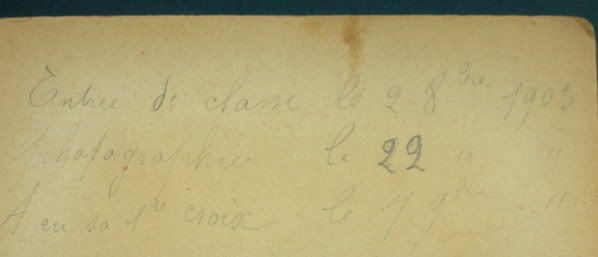 Entrée de classe le 2 8bre 1903
Photographié le 22 " "
A eu sa 1re croix le 7 9bre "